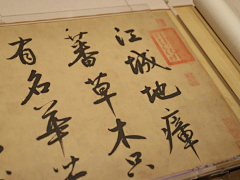 江城地瘴
蕃草木只
有名華